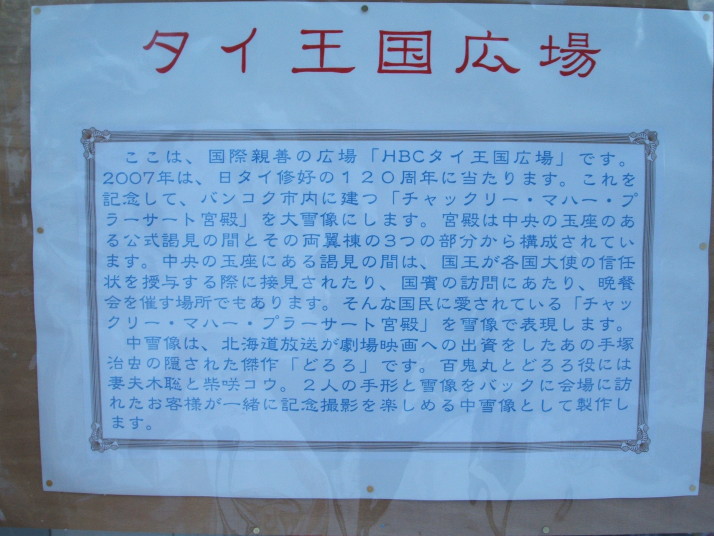 タイ王国広場
ここは、国際親善の広場「HBCタイ王国広場」です。
2007年は、日タイ修好の120周年に当たります。これを
記念して、バンコク市内に建つ「チャックリー・マハー・プ
ラーサート宮殿」を大雪像にします。宮殿は中央の玉座のあ
る公式謁見の間とその両翼棟の3つの部分から構成されてい
ます。中央の玉座にある謁見の間は、国王が各国大使の信任
状を授与する際に接見されたり、国賓の訪問にあたり、晩餐
会を催す場所でもあります。そんな国民に愛されている「チャッ
クリー・マハー・プラーサート宮殿」を雪像で表現します。
中雪像は、北海道放送が劇場映画への出資をしたあの手塚
治虫の隠された傑作「どろろ」です。百鬼丸とどろろ役には
妻夫木聡と柴咲コウ。2人の手形と雪像をバックに会場に訪
れたお客様が一緒に記念撮影を楽しめる中雪像として製作し
ます。